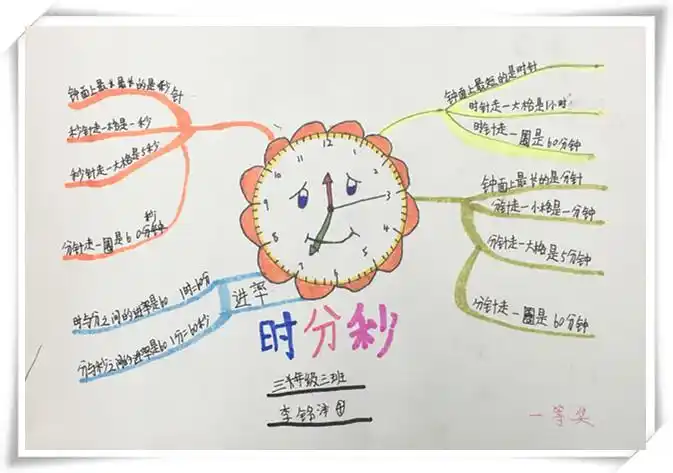 钟面上最长最长的是秒针
秒针走一格是一秒
秒针走一大格是5秒
秒
分针走一圈是60分钟
时与分之间的进率是60 1时=60分
分与秒之间的进率是60 1分=60秒
进率
12
1
2
3
4
5
6
7
8
9
10
11
钟面上最短的是时针
时针走一大格是1小时
时针走一圈是60分钟
钟面上最长的是分针
分针走一小格是一分钟
分针走一大格是5分钟
分针走一圈是60分钟
时分秒
三年级三班
一等奖